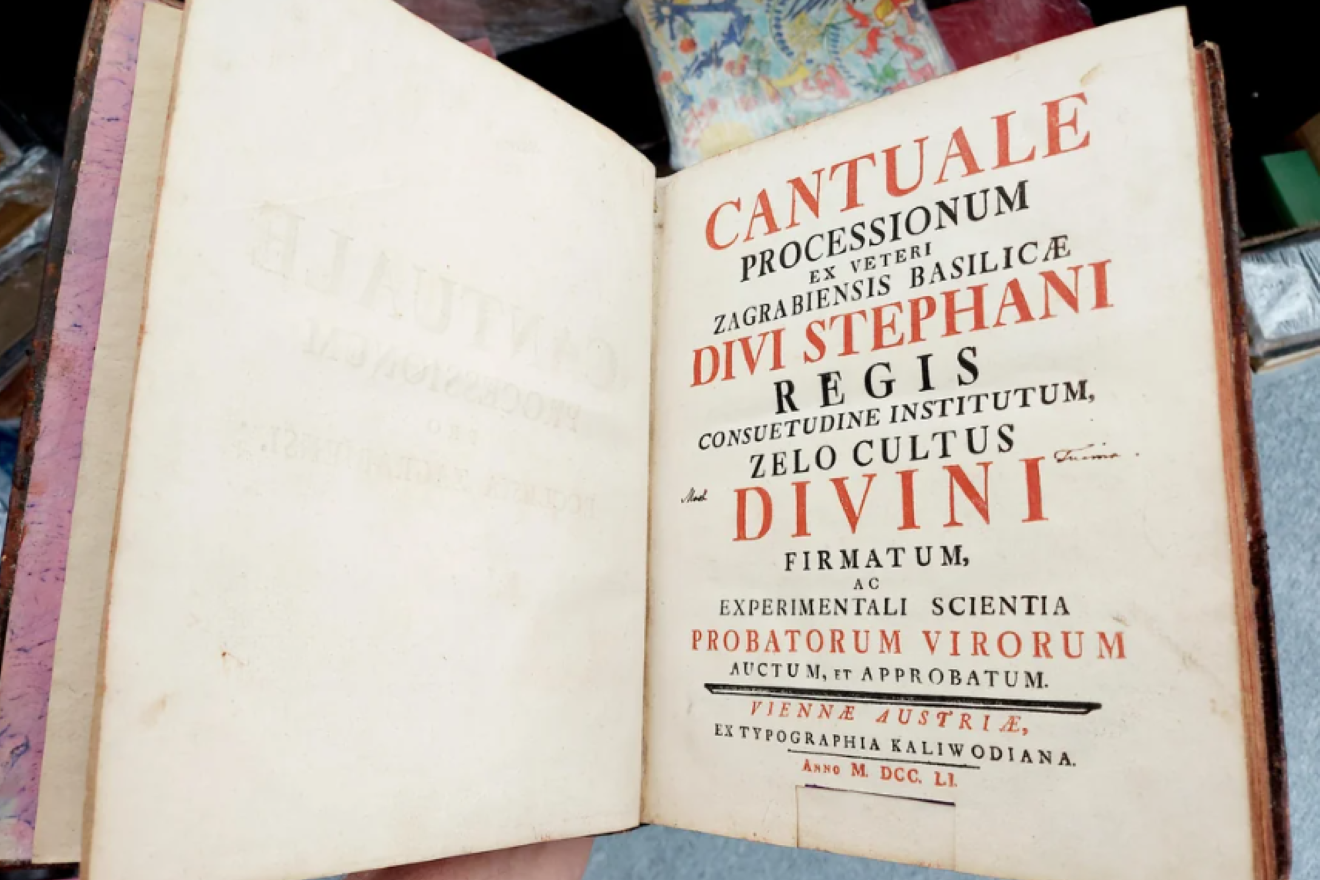 CANTUALE
PROCESSIONUM
EX VETERI
ZAGRABIENSIS BASILICÆ
DIVI STEPHANI
REGIS
CONSUETUDINE INSTITUTUM,
ZELO CULTUS
DIVINI
FIRMATUM,
AC
EXPERIMENTALI SCIENTIA
PROBATORUM VIRORUM
AUCTUM, ET APPROBATUM.
VIENNÆ AUSTRIÆ,
EX TYPOGRAPHIA KALIWODIANA.
ANNO M. DCC. LI.